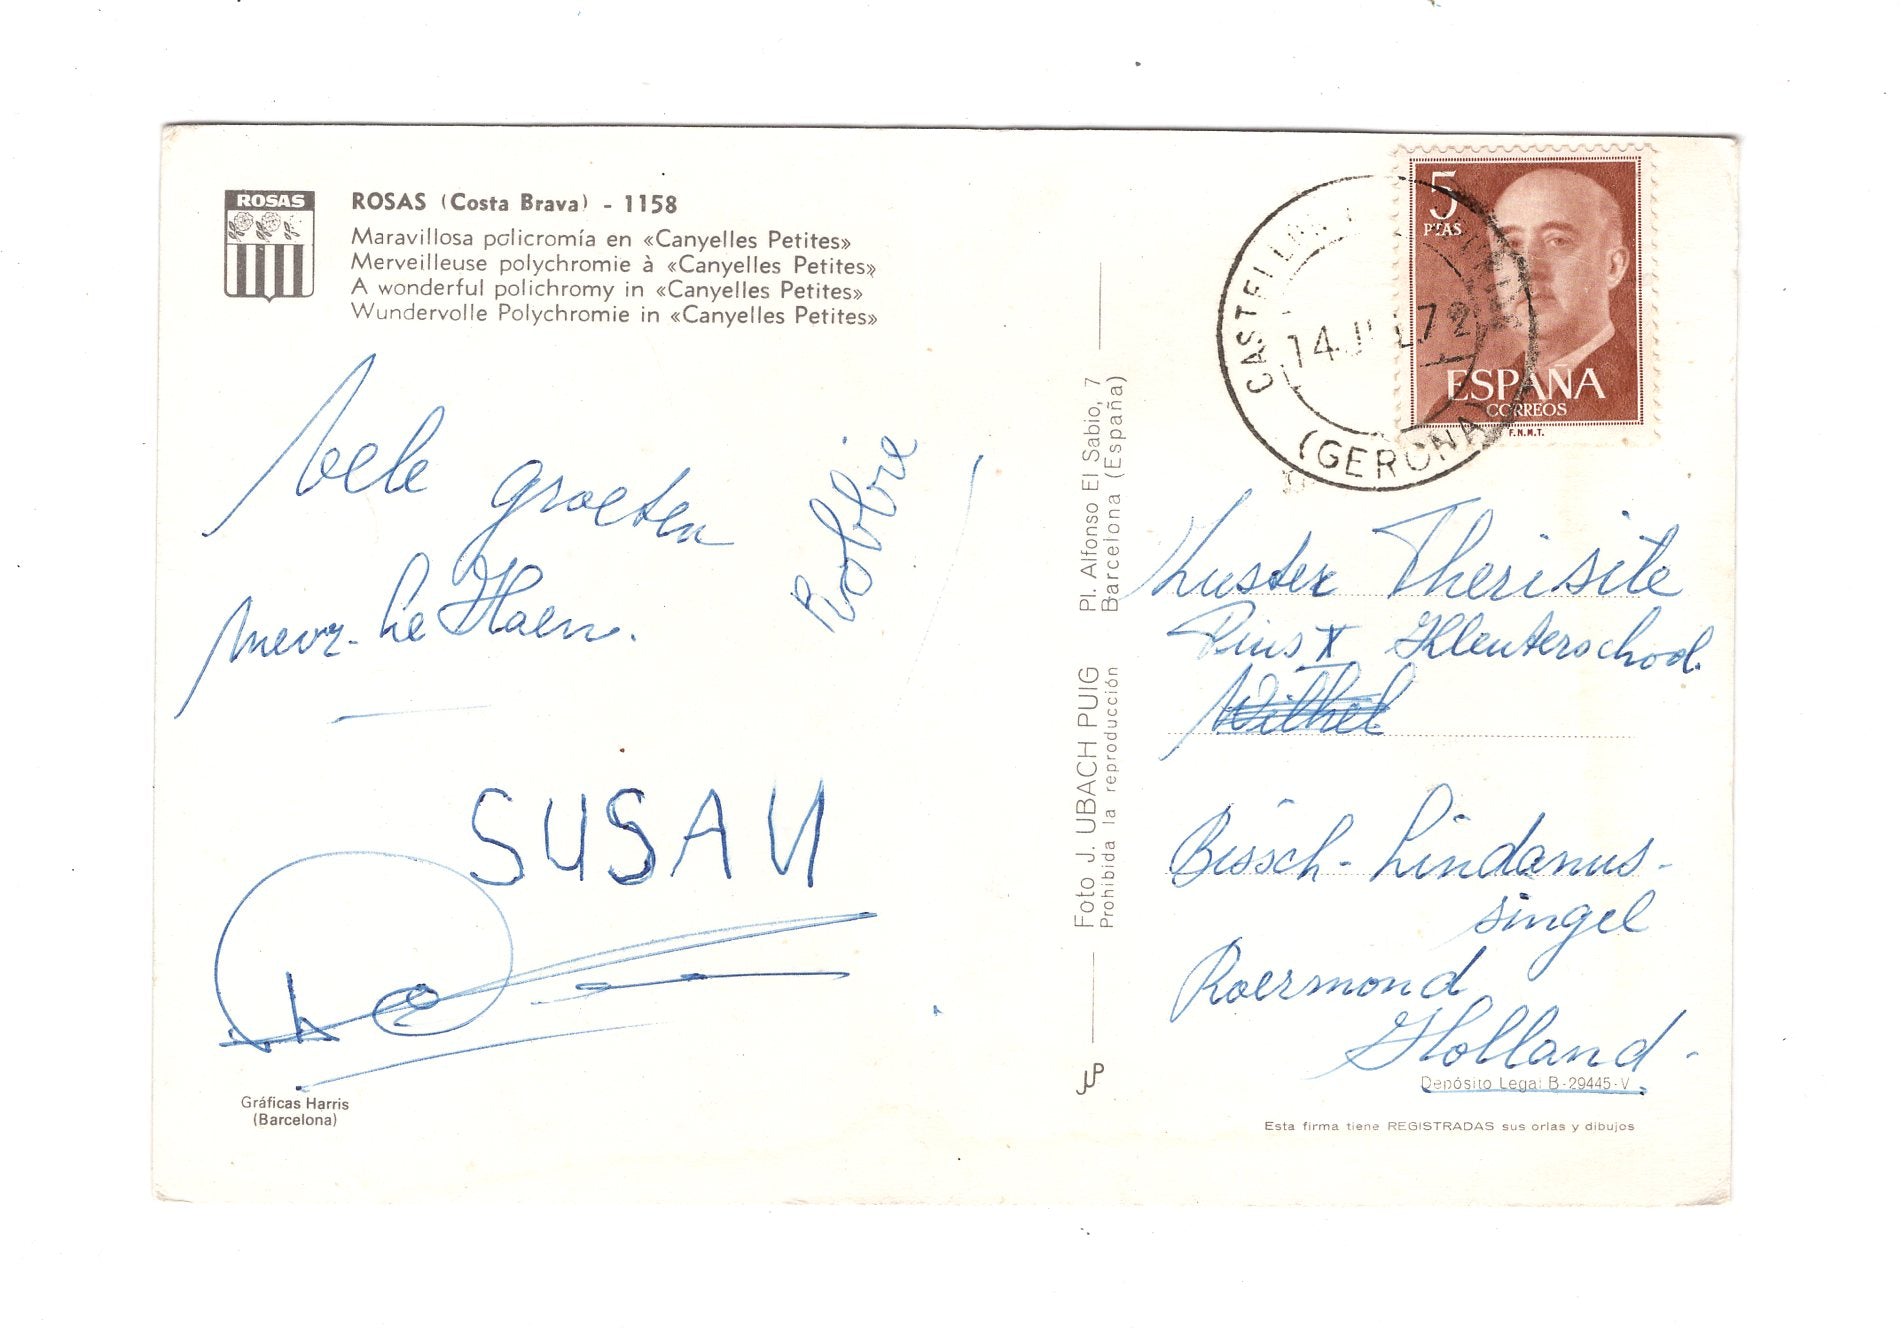 ROSAS
ROSAS (Costa Brava) - 1158
Maravillosa policromía en «Canyelles Petites»
Merveilleuse polychromie à «Canyelles Petites»
A wonderful polichromy in «Canyelles Petites»
Wundervolle Polychromie in «Canyelles Petites»
Vele groeten
Mevr. Le Haen.
Robbie
SUSAN
Gráficas Harris
(Barcelona)
Foto J. UBACH PUIG
Prohibida la reproducción
Pl. Alfonso El Sabio, 7
Barcelona (España)
JUP
5
PTAS
ESPAÑA
CORREOS
F.N.M.T.
CASTELLON
14 JUL 72
(GERONA)
Zuster Therisite
Pius X Kleuterschool.
Bissch-Lindanus-
singel
Roermond
Holland-
Depósito Legal B-29445-V
Esta firma tiene REGISTRADAS sus orlas y dibujos